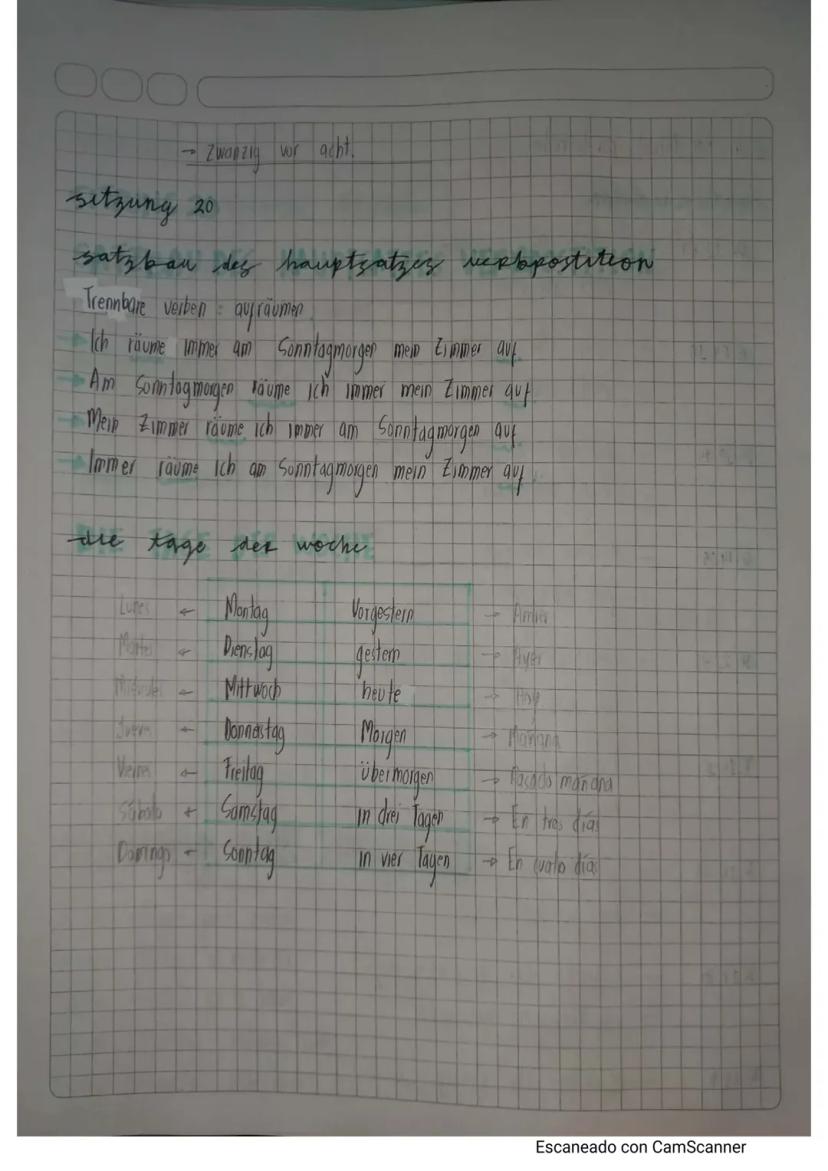 → Zwanzig vor acht.
sitzung 20
satzbau des hauptsatzes verbpostition
Trennbare verben : aufräumen
→ Ich räume immer am Sonntagmorgen mein Zimmer auf
→ Am Sonntagmorgen räume ich immer mein Zimmer auf
→ Mein Zimmer räume ich immer am Sonntagmorgen auf
→ Immer räume ich am Sonntagmorgen mein Zimmer auf
die tage der woche
Lunes ← Montag Vorgestern →
Martes ← Dienstag gestern → Ayer
← Mittwoch heute → Hoy
← Donnerstag Morgen → Mañana
← Freitag übermorgen → Pasado mañana
Sábado ← Samstag in drei Tagen → En tres días
Domingo ← Sonntag in vier Tagen → En días
Escaneado con CamScanner